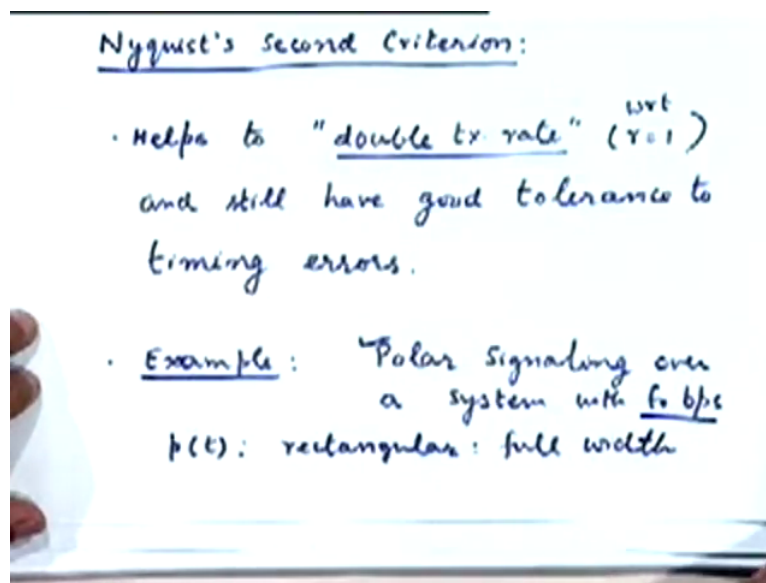 Nyquist's Second Criterion:
wrt
· Helps to "double tx. rate" (r=1)
and still have good tolerance to
timing errors.
· Example: Polar Signaling over
a system with fo bps
p(t): rectangular: full width